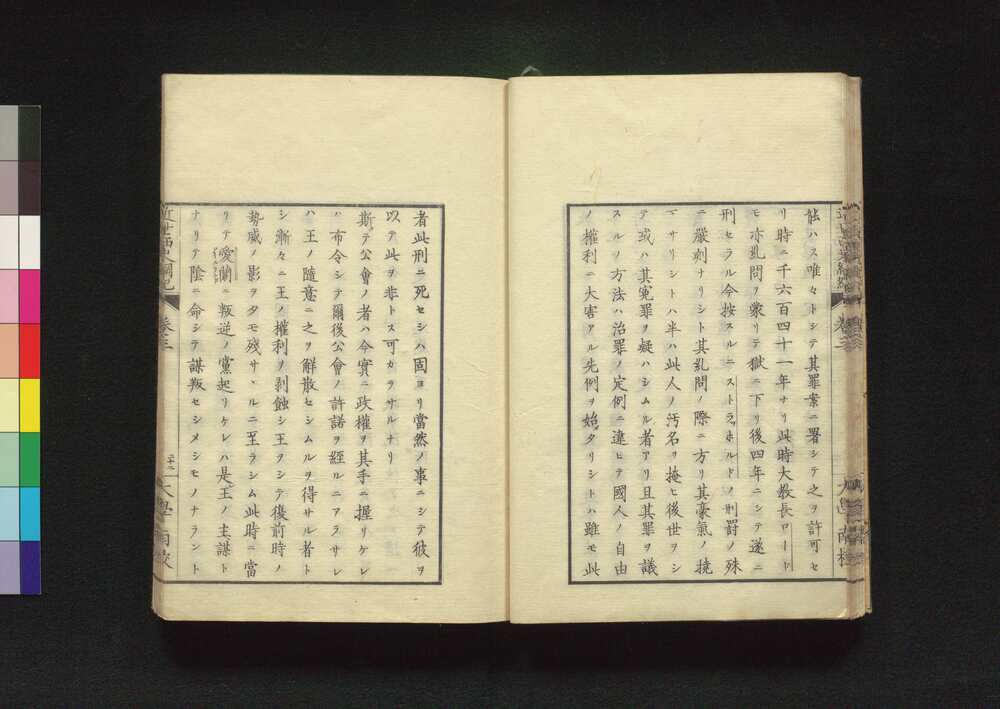 能ハス唯々トシテ其罪案ニ署シテ之ヲ許可セ
リ時ニ千六百四十一年ナリ此時大教長ロード
モ亦糺問ヲ蒙リテ獄ニ下リ後四年ニシテ遂ニ
刑セラル今按スルニストラッホルドノ刑罰ノ殊
ニ嚴刻ナリシト其糺問ノ際ニ方リ其豪氣ノ撓
マサリシトハ半ハ此人ノ汚名ヲ掩ヒ後世ヲシ
テ或ハ其冤罪ヲ疑ハシムル者アリ且其罪ヲ議
スルノ方法ハ治罪ノ定例ニ違ヒテ國人ノ自由
ノ權利ニ大害アル先例ヲ始メタリシトハ雖モ此
者此刑ニ死セシハ固ヨリ當然ノ事ニシテ彼ヲ
以テ此ヲ非トス可カラサルナリ
斯テ公會ノ者ハ今實ニ政權ヲ其手ニ握リケレ
ハ布令シテ爾後公會ノ許諾ヲ經ルニアラサレ
ハ王ノ隨意ニ之ヲ解散セシムルヲ得サル者ト
シ漸々ニ王ノ權利ヲ剥蝕シ王ヲシテ復前時ノ
勢威ノ影ヲタモ殘サヽルニ至ラシム此時ニ當
リテ愛蘭ニ叛逆ノ黨起リケレハ是王ノ主謀ト
ナリテ陰ニ命シテ謀叛セシメシモノナラント
近世西史綱紀 卷三 大學南校